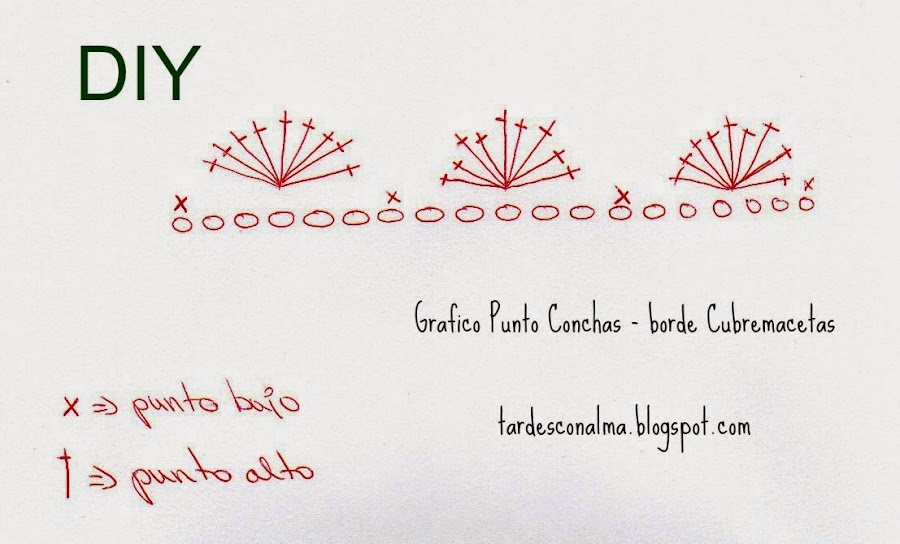 DIY
Grafico Punto Conchas - borde Cubremacetas
x => punto bajo
tardesconalma.blogspot.com
† => punto alto